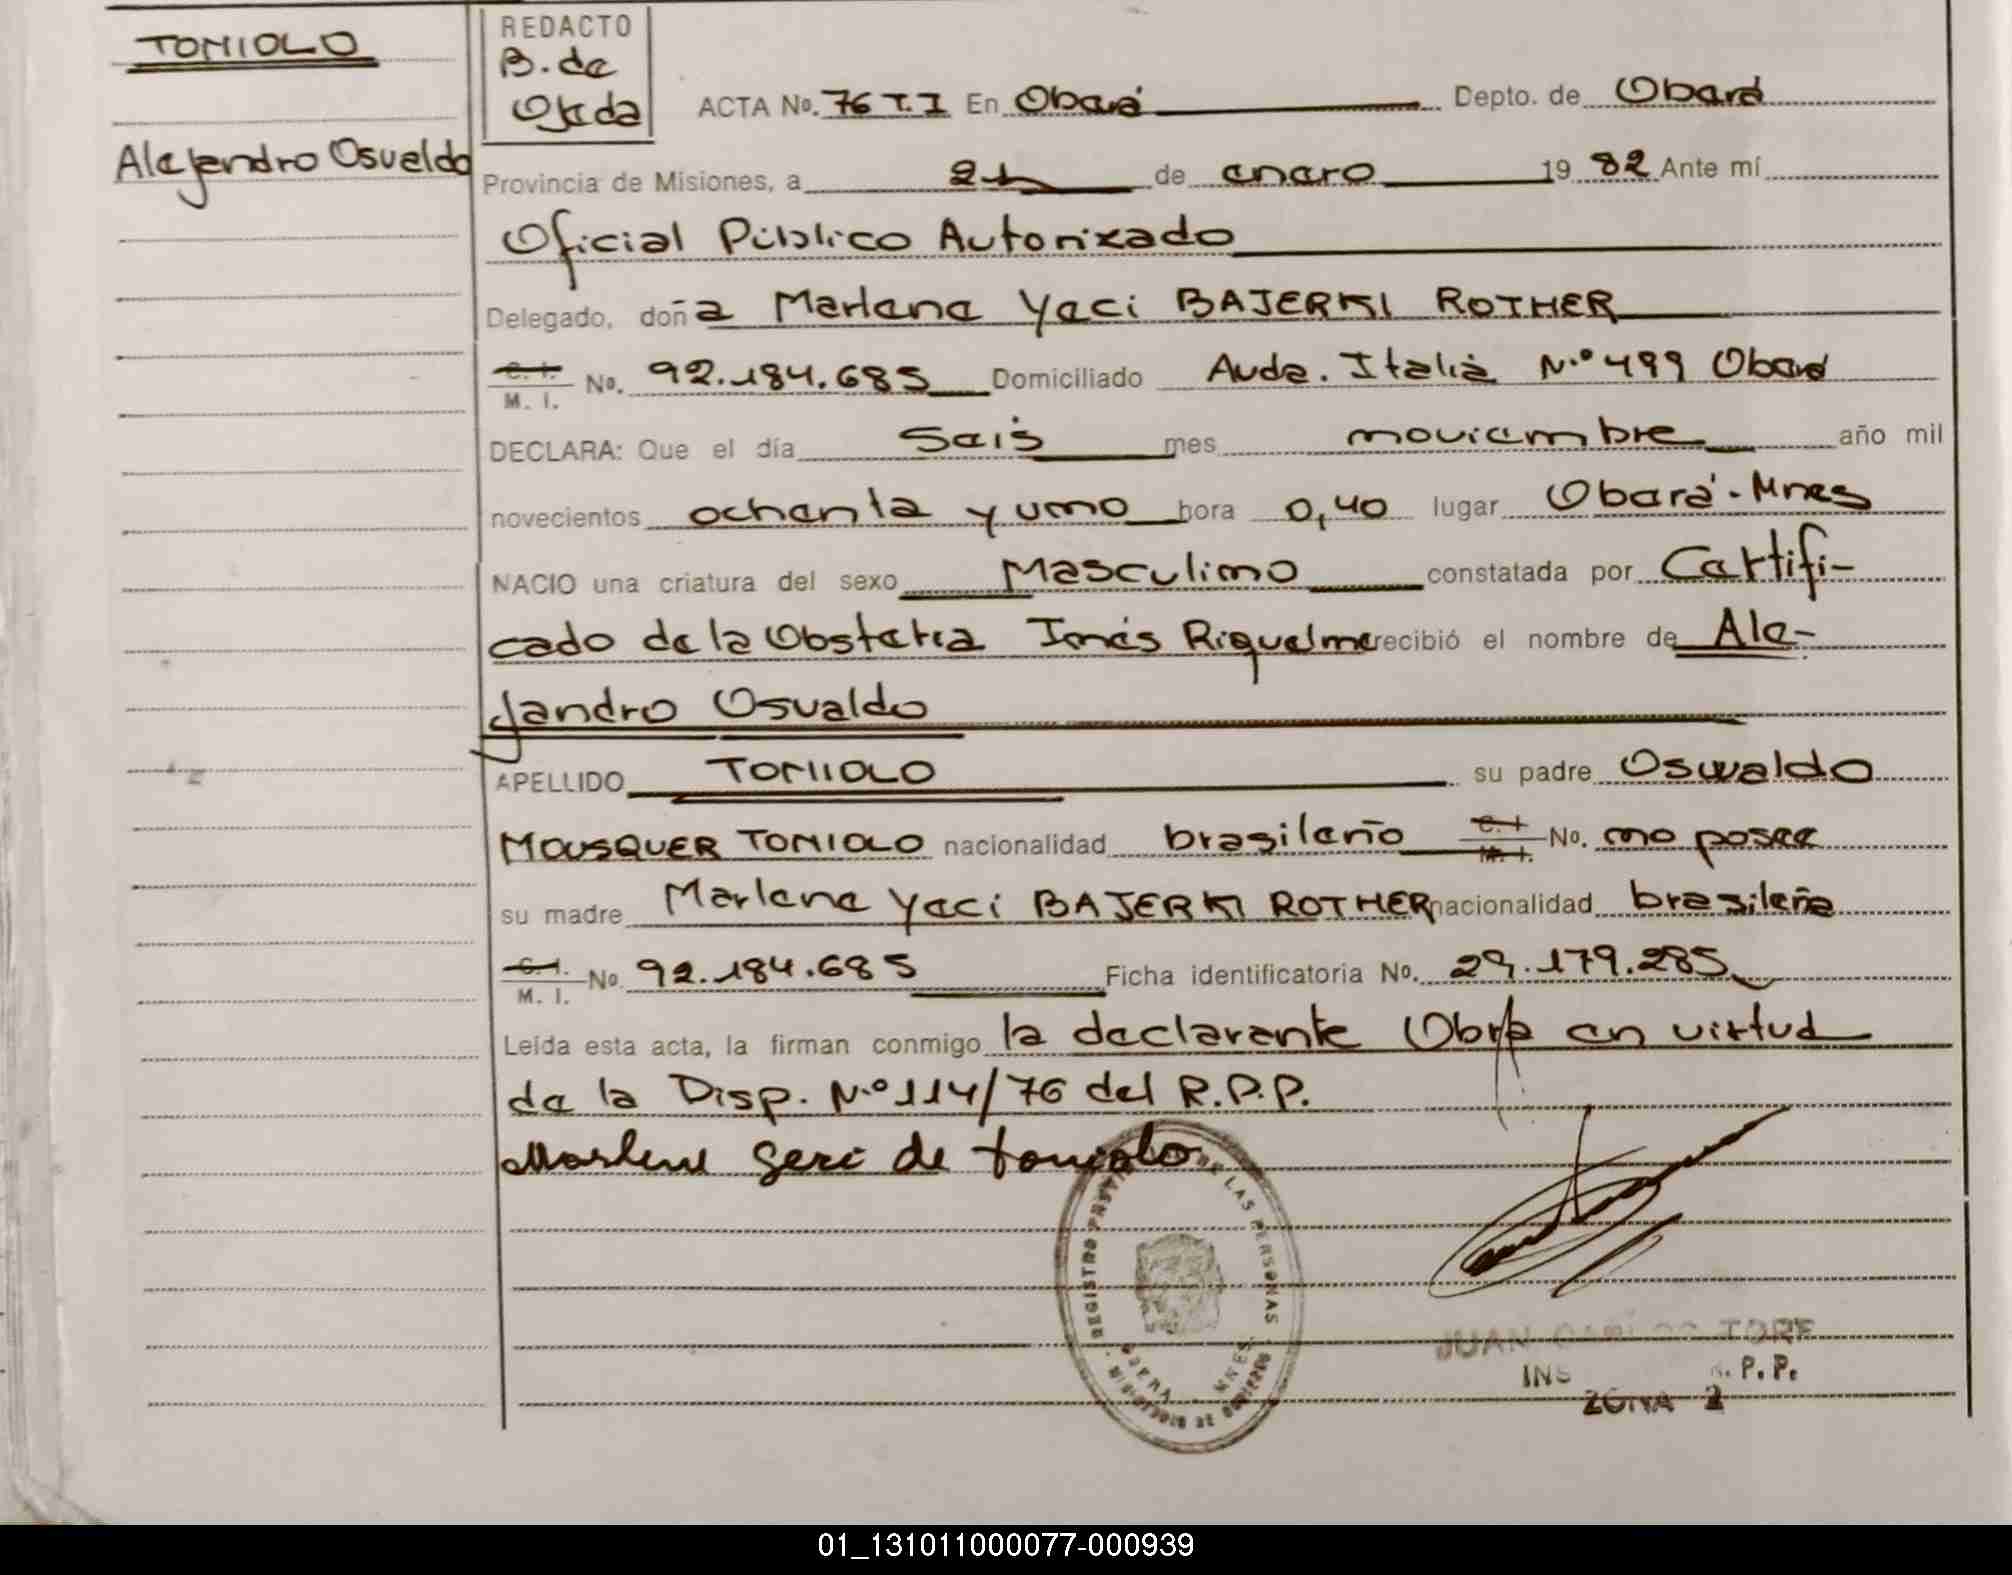 TONIOLO
Alejandro Osvaldo
REDACTO
B. de
Ojeda
ACTA No. 76 T.I En Oberá Depto. de Oberá
Provincia de Misiones, a 21 de enero 19 82 Ante mí
Oficial Público Autorizado
Delegado, doña Marlene Yeci BAJERKI ROTHER
C. I. M. I. No. 92.184.685 Domiciliado Avda. Italia N.º 499 Oberá
DECLARA: Que el día Seis mes noviembre año mil
novecientos ochenta y uno hora 0,40 lugar Oberá - Mnes
NACIO una criatura del sexo Masculino constatada por Certifi-
cado de la Obstetra Inés Riquelme recibió el nombre de Ale-
jandro Osvaldo
APELLIDO TONIOLO su padre Oswaldo
MOUSQUER TONIOLO nacionalidad brasileño C. I. M. I. No. no posee
su madre Marlene Yeci BAJERKI ROTHER nacionalidad brasileña
C. I. M. I. No. 92.184.685 Ficha identificatoria No. 29.179.285
Leída esta acta, la firman conmigo la declarante Obra en virtud
de la Disp. N.º 114/76 del R.P.P.
Marlene Yeci de Toniolo
REGISTRO PROVINCIAL DE LAS PERSONAS
OBERA MNES.
MINISTERIO DE GOBIERNO
JUAN CARLOS
INS P. P.
ZONA 2
01_131011000077-000939